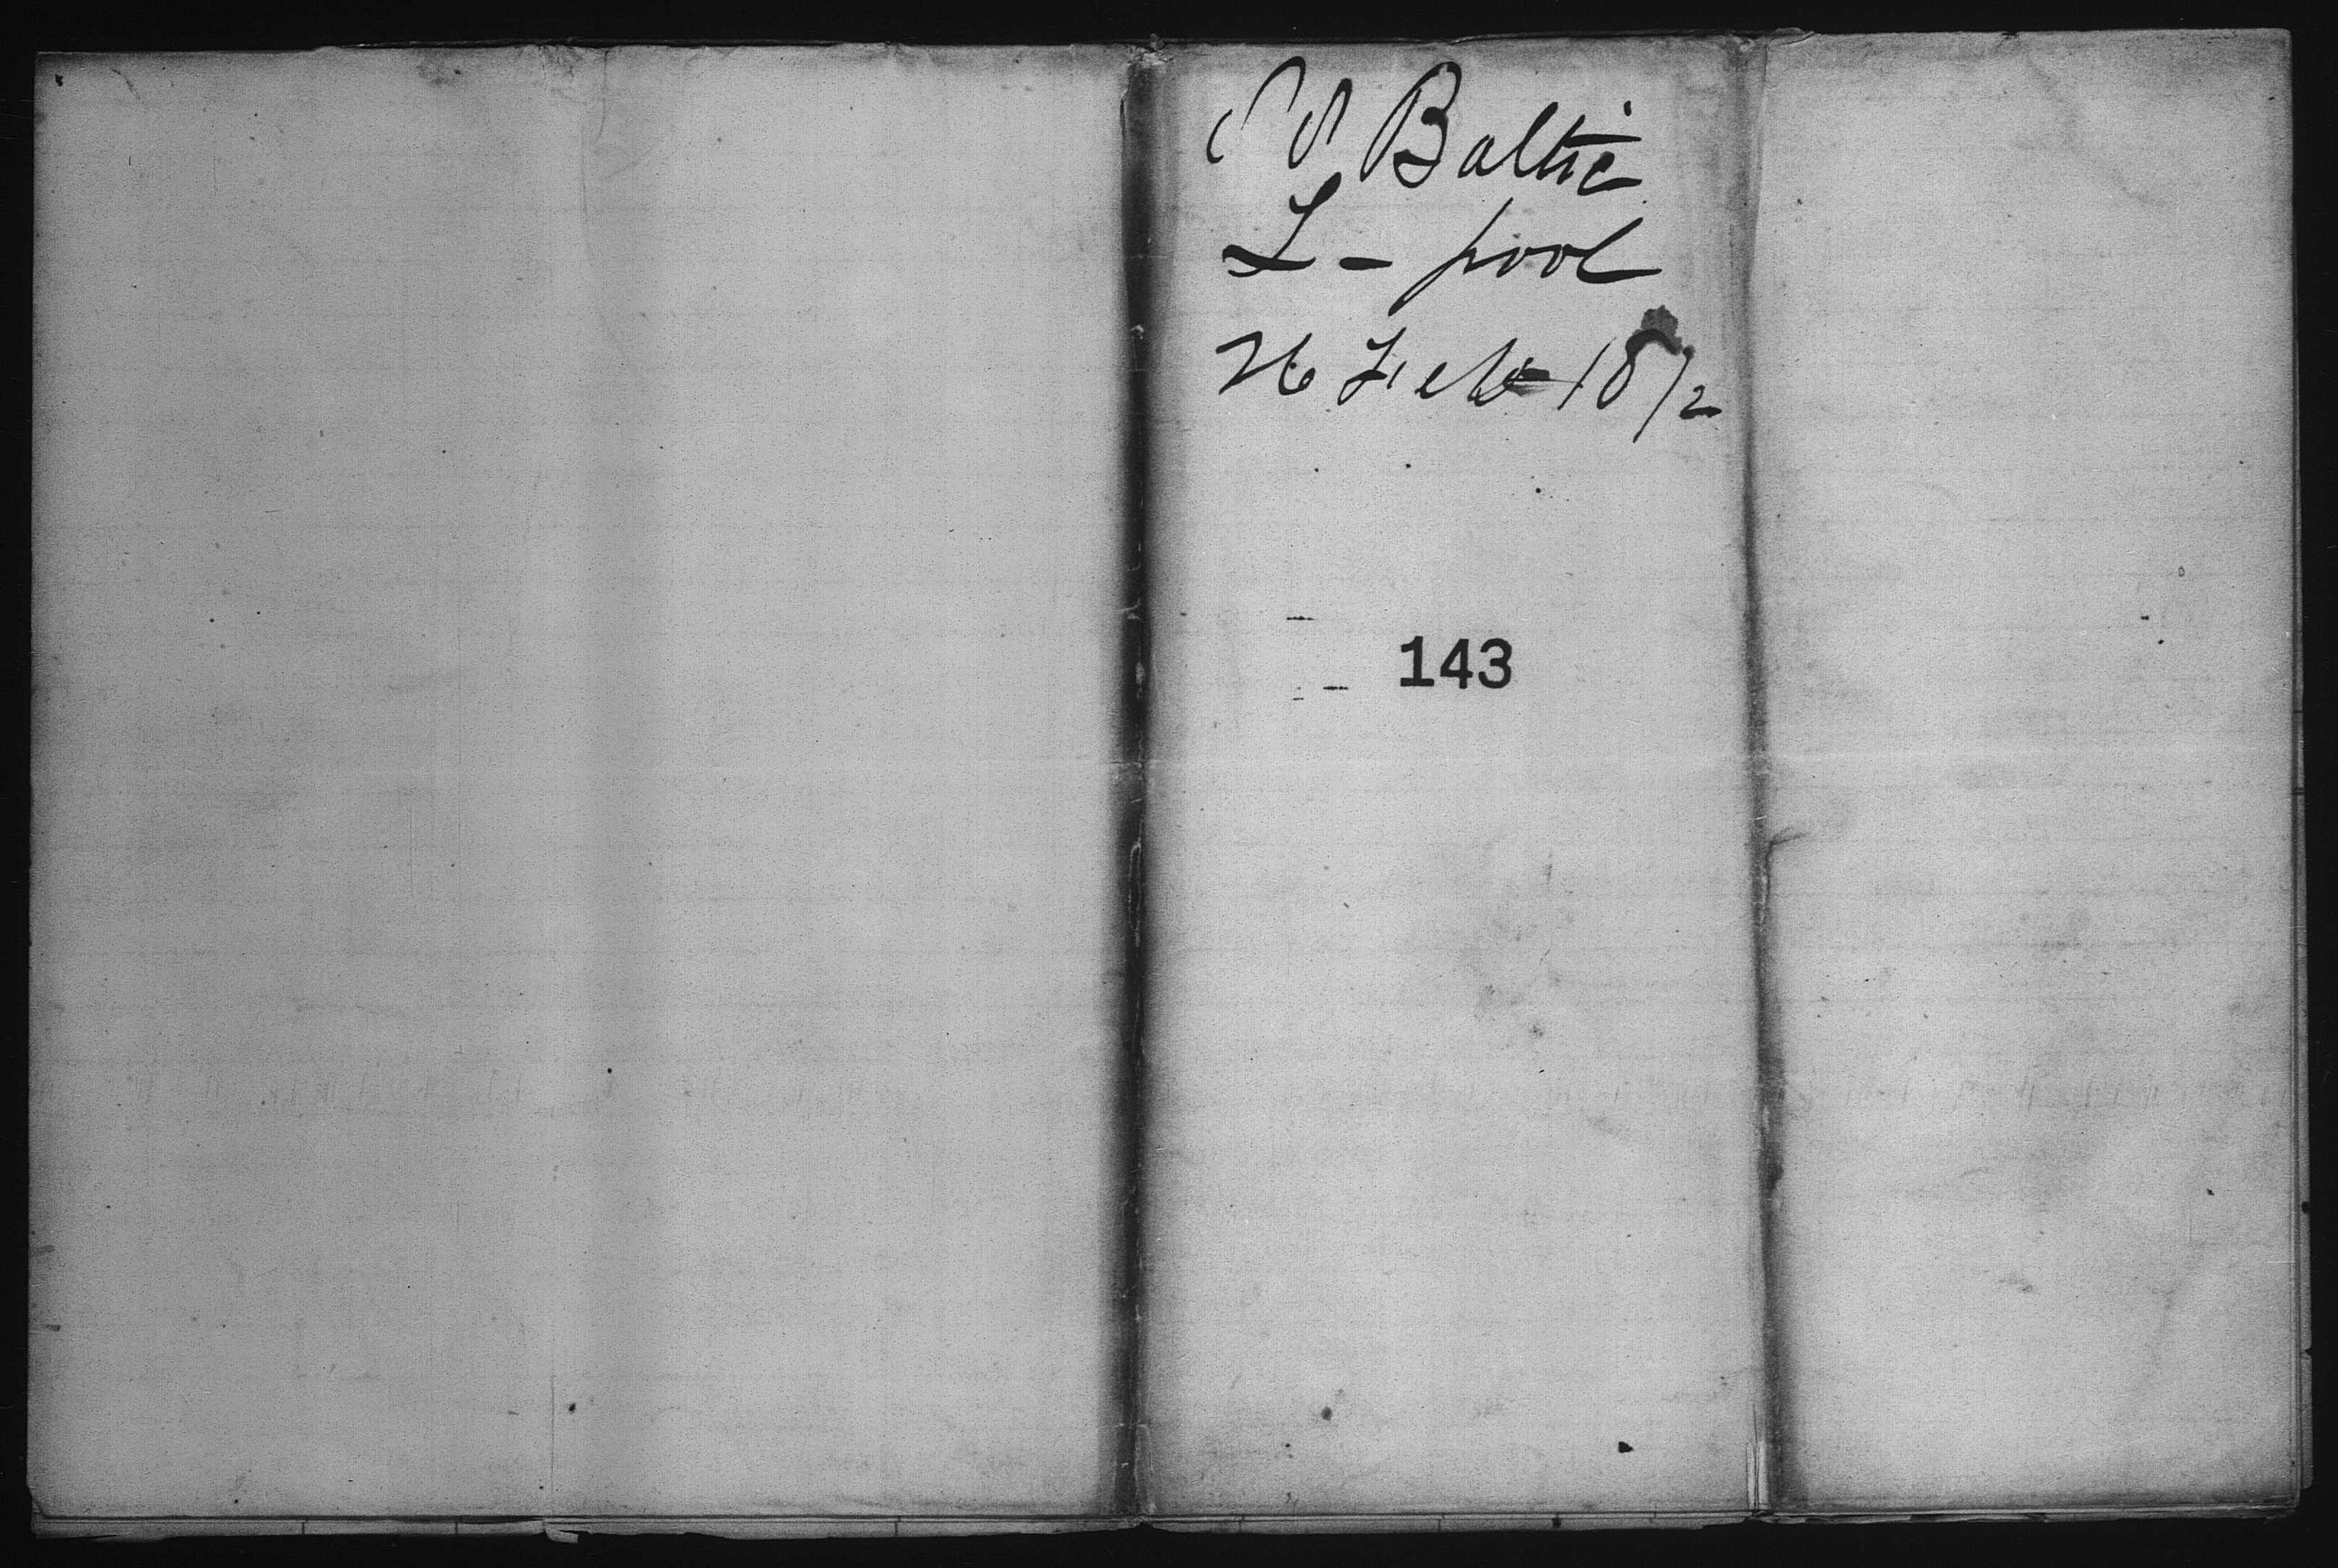 SS Baltic
L-pool
26 Feb 1872
143